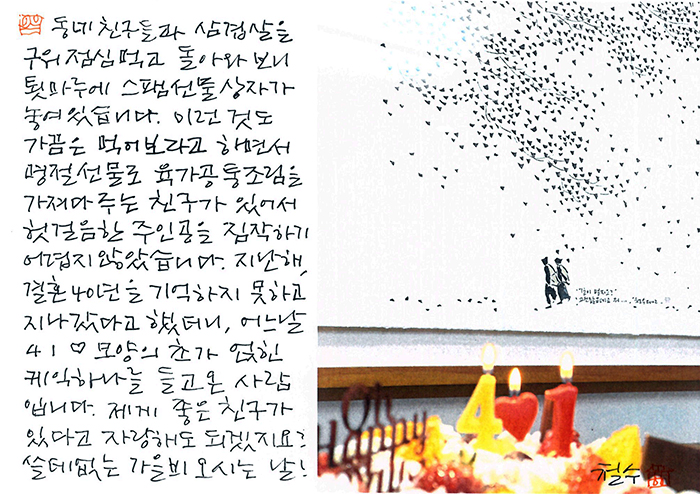 동네 친구들과 삼겹살을
구워 점심먹고 돌아와 보니
툇마루에 스팸선물상자가
놓여 있습니다. 이런 것도
가끔은 먹어보라고 하면서
명절선물로 육가공 통조림을
가져다 주는 친구가 있어서
헛걸음한 주인공을 짐작하기
어렵지 않았습니다. 지난해,
결혼 40년을 기억하지 못하고
지나갔다고 했더니, 어느날
41♡모양의 초가 얹힌
케익하나를 들고 온 사람
입니다. 제게 좋은 친구가
있다고 자랑해도 되겠지요?
쓸데없는 가을비 오시는 날!
4 1
철수